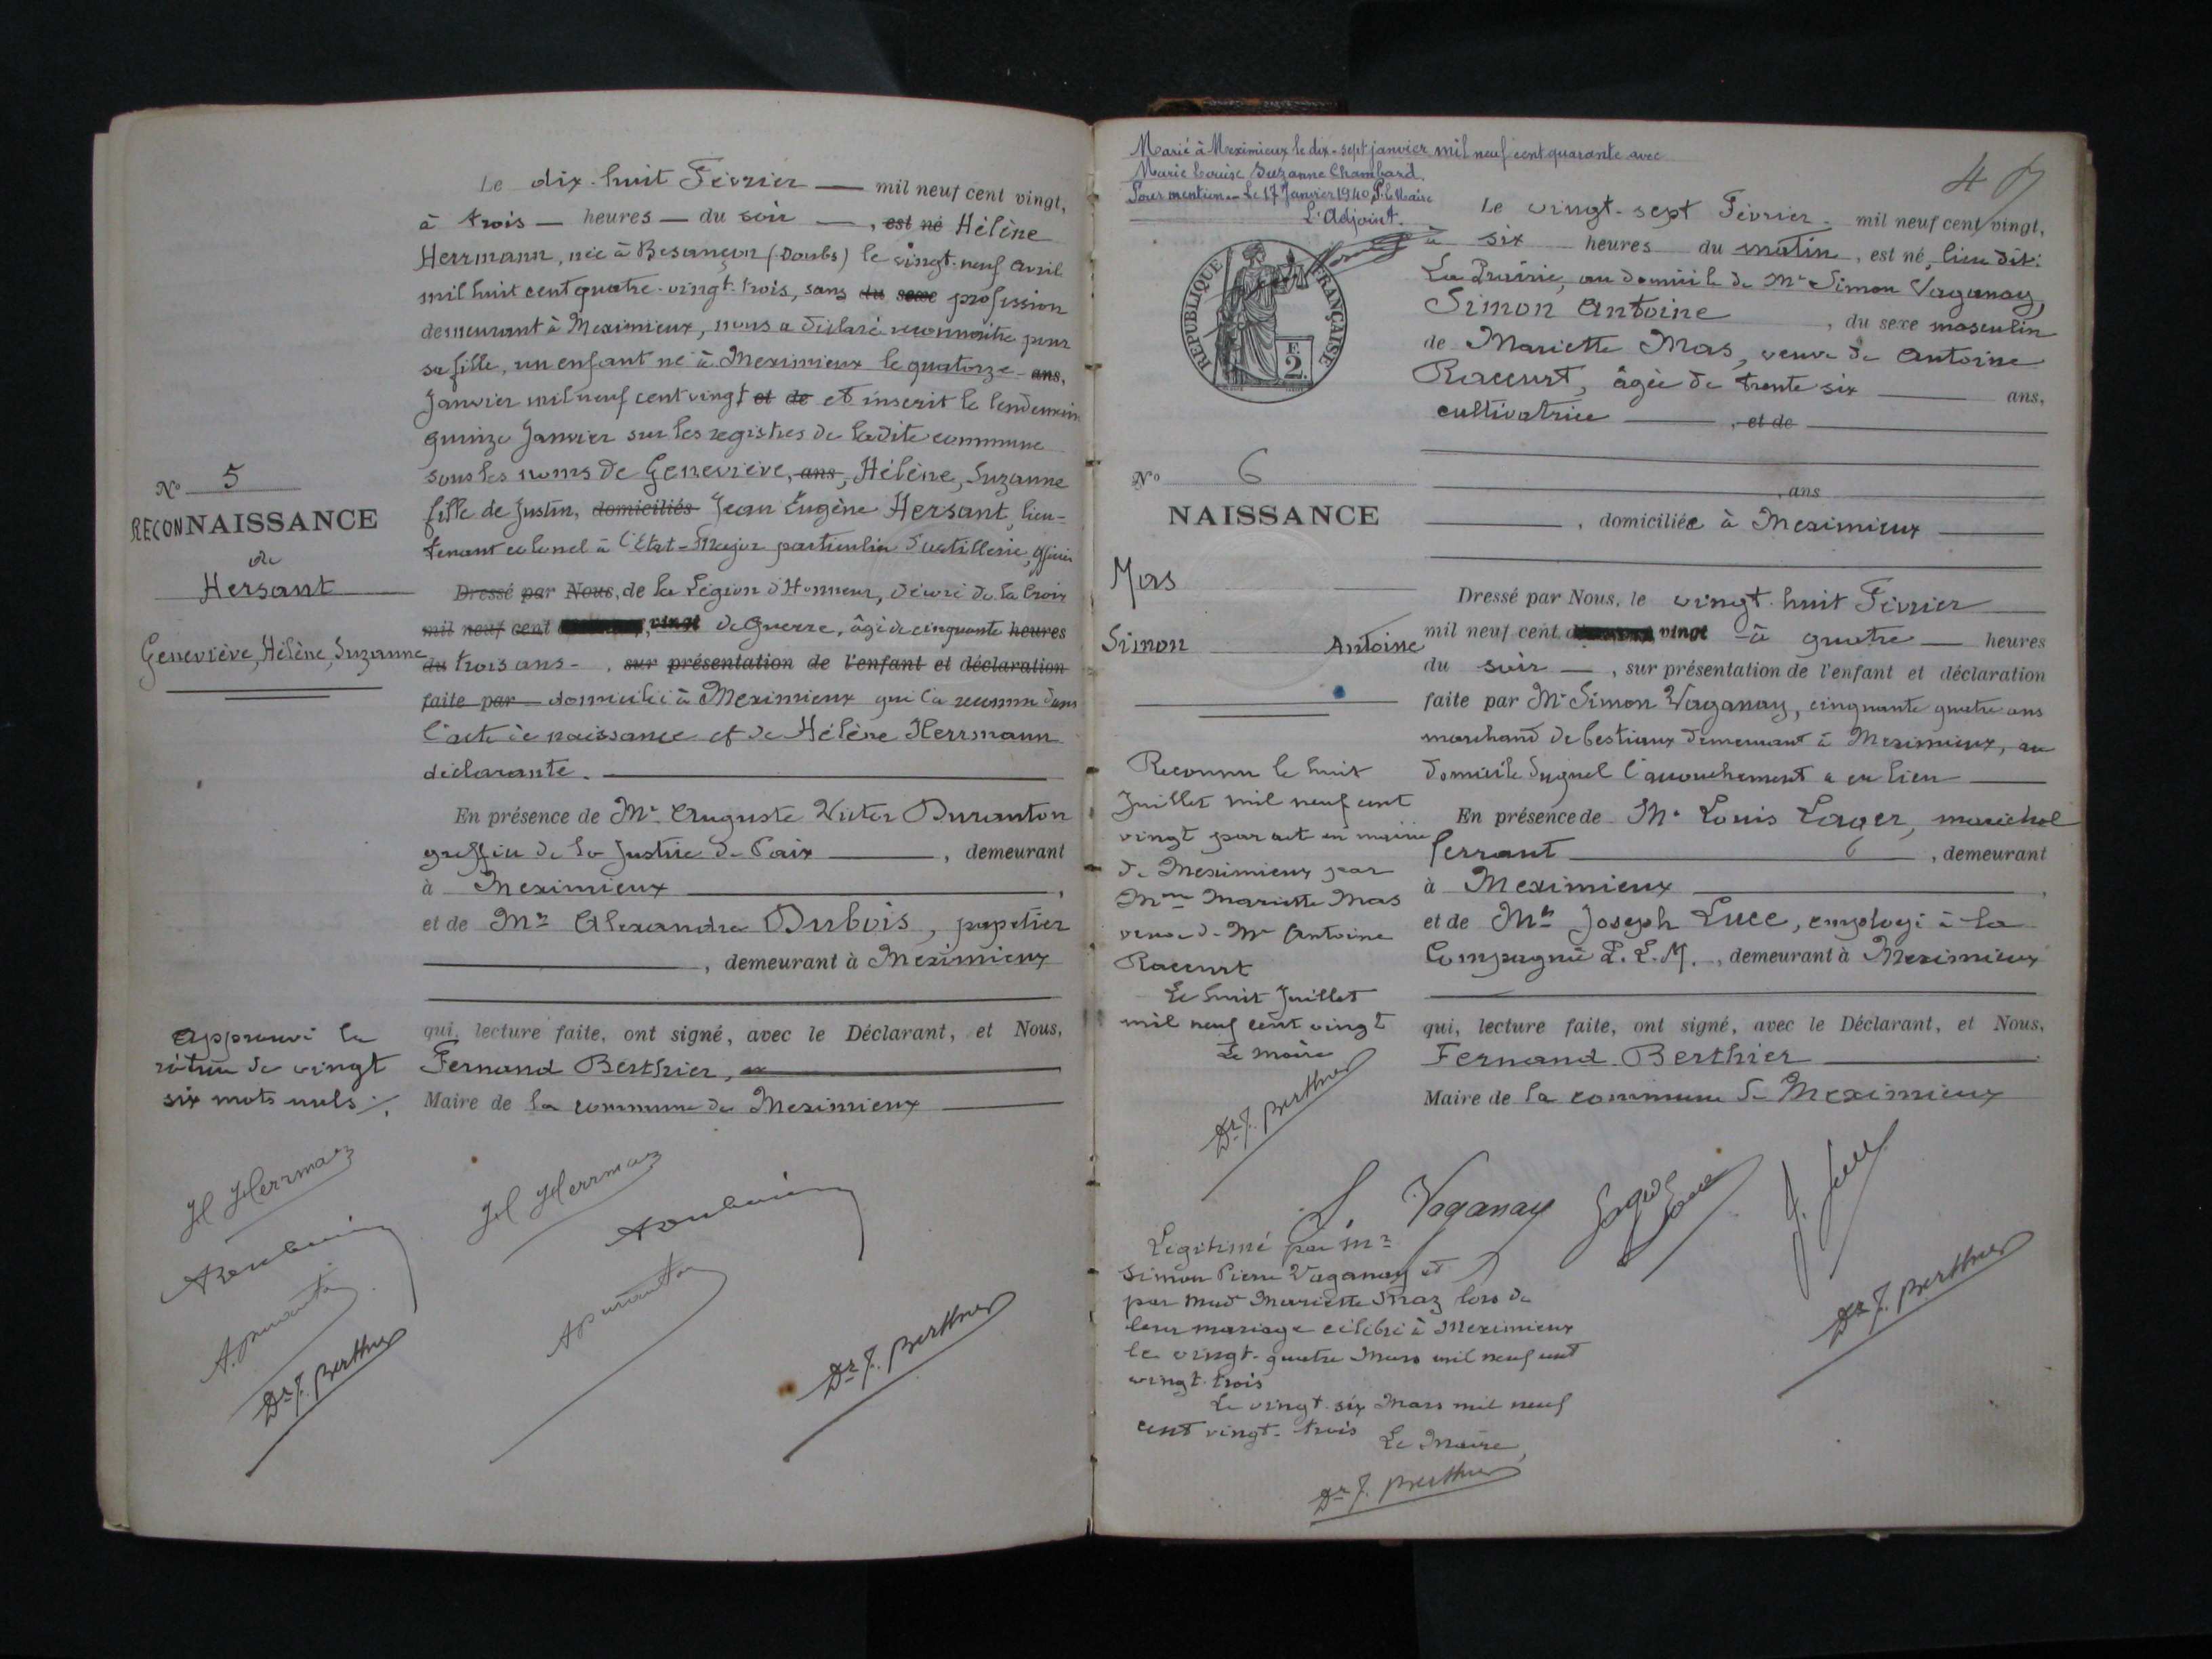 Le dix-huit Février — mil neuf cent vingt,
à trois — heures — du soir —, est né Hélène
Herrmann, née à Besançon (Doubs) le vingt-neuf avril
mil huit cent quatre-vingt-trois, sans du sexe profession
demeurant à Meximieux, nous a déclaré reconnaître pour
sa fille, un enfant né à Meximieux le quatorze - ans,
Janvier mil neuf cent vingt et de et inscrit le lendemain
quinze Janvier sur les registres de ladite commune
sous les noms de Geneviève, ans, Hélène, Suzanne
fille de Justin, domiciliés Jean Eugène Hersant, lieu-
tenant colonel à l'Etat-Major particulier d'artillerie, officier
Dressé par Nous, de la Légion d'Honneur, décoré de la Croix
mil neuf cent vingt de Guerre, âgé de cinquante heures
du trois ans -, sur présentation de l'enfant et déclaration
faite par domicilié à Meximieux qui l'a reconnu dans
l'acte de naissance et de Hélène Herrmann
déclarante.
En présence de Mr Auguste Victor Duranton
greffier de la Justice de Paix —, demeurant
à Meximieux
et de Mr Alexandre Dubois, papetier
, demeurant à Meximieux
qui, lecture faite, ont signé, avec le Déclarant, et Nous,
Fernand Berthier,
Maire de la commune de Meximieux
No 5
RECONNAISSANCE
de
Hersant
Geneviève, Hélène, Suzanne
Approuvé la
rature de vingt
six mots nuls
H Herrmann
H Herrmann
A Duranton
A Duranton
Dr F. Berthier
Dr F. Berthier
Marié à Meximieux le dix-sept janvier mil neuf cent quarante avec
Marie Louise Suzanne Chambard.
Pour mention - Le 17 Janvier 1940 P. le Maire
L'Adjoint.
RÉPUBLIQUE FRANÇAISE
F.
2.
Le vingt-sept Février - mil neuf cent vingt,
à six heures du matin, est né, lieu dit:
La Prairie, au domicile de Mr Simon Vaganay,
Simon Antoine, du sexe masculin
de Mariette Mas, veuve de Antoine
Raccurt, âgée de trente six — ans,
cultivatrice —, et de
, ans
, domiciliée à Meximieux
Dressé par Nous, le vingt-huit Février
mil neuf cent vingt à quatre — heures
du soir —, sur présentation de l'enfant et déclaration
faite par Mr Simon Vaganay, cinquante quatre ans
marchand de bestiaux demeurant à Meximieux, au
domicile duquel l'accouchement a eu lieu
En présence de Mr Louis Lager, maréchal
ferrant, demeurant
à Meximieux
et de Mr Joseph Luce, employé à la
Compagnie P. L. M., demeurant à Meximieux
qui, lecture faite, ont signé, avec le Déclarant, et Nous,
Fernand Berthier
Maire de la commune de Meximieux
No 6
NAISSANCE
Mas
Simon Antoine
Reconnu le huit
Juillet mil neuf cent
vingt par acte en mairie
de Meximieux par
Mme Mariette Mas
veuve de Mr Antoine
Raccurt
Le huit Juillet
mil neuf cent vingt
Le maire
Dr F. Berthier
S Vaganay
J. Luce
Dr F. Berthier
Légitimé par Mr
Simon Pierre Vaganay et
par Made Mariette Maz lors de
leur mariage célébré à Meximieux
le vingt-quatre Mars mil neuf cent
vingt-trois
Le vingt-six Mars mil neuf
cent vingt-trois Le Maire,
Dr F. Berthier